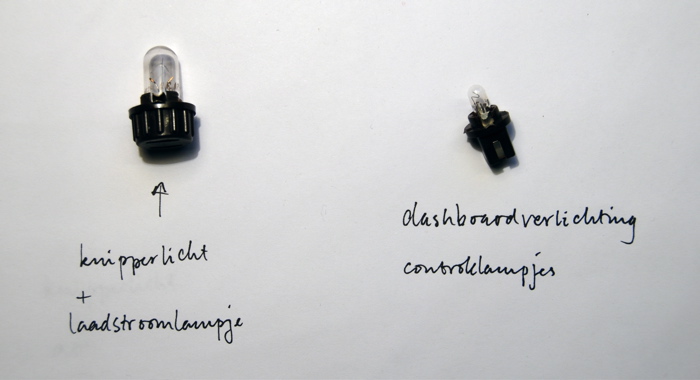 knipperlicht
+
laadstroomlampje
dashboardverlichting
controlelampjes